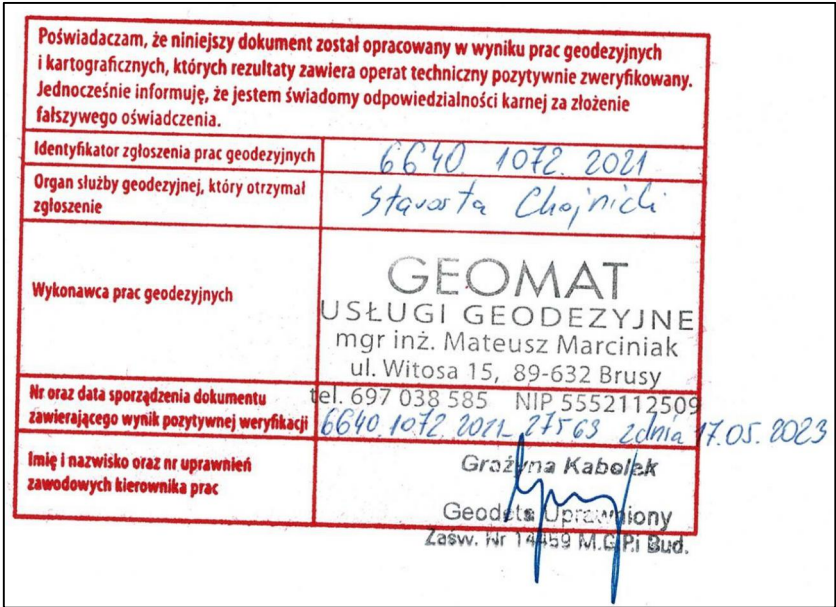 Poświadczam, że niniejszy dokument został opracowany w wyniku prac geodezyjnych
i kartograficznych, których rezultaty zawiera operat techniczny pozytywnie zweryfikowany.
Jednocześnie informuję, że jestem świadomy odpowiedzialności karnej za złożenie
fałszywego oświadczenia.
Identyfikator zgłoszenia prac geodezyjnych
6640. 1072. 2021
Organ służby geodezyjnej, który otrzymał
zgłoszenie
Starosta Chojnicki
Wykonawca prac geodezyjnych
GEOMAT
USŁUGI GEODEZYJNE
mgr inż. Mateusz Marciniak
ul. Witosa 15, 89-632 Brusy
tel. 697 038 585 NIP 5552112509
Nr oraz data sporządzenia dokumentu
zawierającego wynik pozytywnej weryfikacji
6640.1072.2021_27563 z dnia 17.05.2023
Imię i nazwisko oraz nr uprawnień
zawodowych kierownika prac
Grażyna Kabolek
Geodeta Uprawniony
Zaśw. Nr 14459 M.G.P.i Bud.